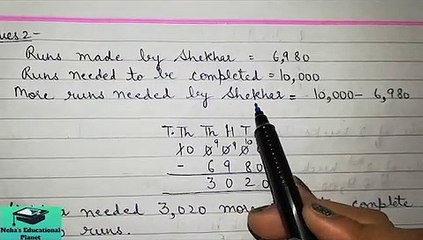 ues 2-
Runs made by Shekhar = 6,980
Runs needed to be completed = 10,000
More runs needed by Shekhar = 10,000 - 6,980
T.Th Th H T
- 6 9 8 0
3 0 2 0
needed 3,020 more complete
runs.
Neha's Educational
Planet